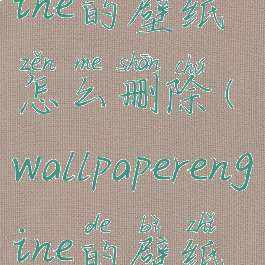 ine的壁纸
zěn me shān chú
怎么删除(
wallpapereng
de bì zhǐ
ine的壁纸